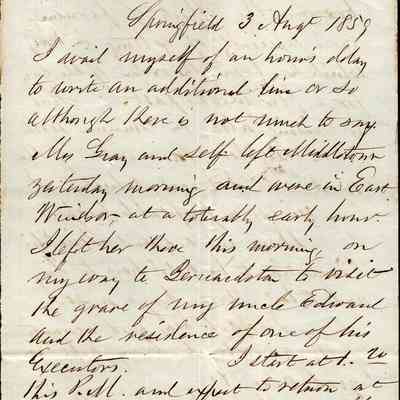 Springfield 3 Augt 1859
I avail myself of an hour's delay
to write an additional line or so
although there is not much to say.
Mrs Gray and self left Middletown
yesterday morning and were in East
Windsor at a tolerably early hour.
I left her there this morning, on
my way to Bernardston to visit
the grave of my uncle Edward
and the residence of one of his
Executors. I start at 1. 20
this P.M. and expect to return at